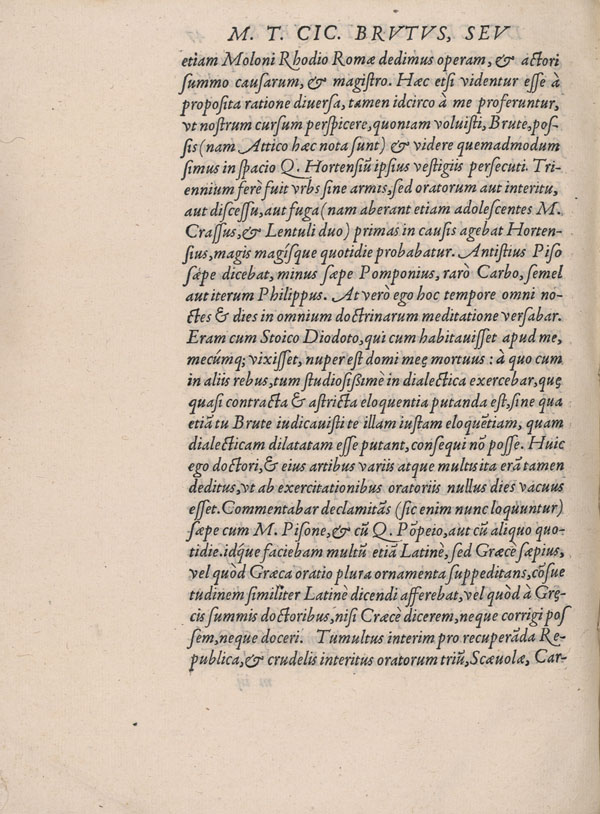 M. T. CIC. BRVTVS, SEV
etiam Moloni Rhodio Romæ dedimus operam, & actori
summo causarum, & magistro. Hæc etsi videntur esse à
proposita ratione diuersa, tamen idcirco à me proferuntur,
vt nostrum cursum perspicere, quoniam voluisti, Brute, pos-
sis (nam Attico hæc nota sunt) & videre quemadmodum
simus in spacio Q. Hortensiũ ipsius vestigiis persecuti. Tri-
ennium ferè fuit vrbs sine armis, sed oratorum aut interitu,
aut discessu, aut fuga (nam aberant etiam adolescentes M.
Crassus, & Lentuli duo) primas in causis agebat Horten-
sius, magis magísque quotidie probabatur. Antistius Piso
sæpe dicebat, minus sæpe Pomponius, rarò Carbo, semel
aut iterum Philippus. At verò ego hoc tempore omni no-
ctes & dies in omnium doctrinarum meditatione versabar.
Eram cum Stoico Diodoto, qui cum habitauisset apud me,
mecúmq; vixisset, nuper est domi meę mortuus : à quo cum
in aliis rebus, tum studiosissimè in dialectica exercebar, quę
quasi contracta & astricta eloquentia putanda est, sine qua
etiã tu Brute iudicauisti te illam iustam eloquẽtiam, quam
dialecticam dilatatam esse putant, consequi nõ posse. Huic
ego doctori, & eius artibus variis atque multis ita erã tamen
deditus, vt ab exercitationibus oratoriis nullus dies vacuus
esset. Commentabar declamitãs (sic enim nunc loquũntur)
sæpe cum M. Pisone, & cũ Q. Põpeio, aut cũ aliquo quo-
tidie. idq́ue faciebam multũ etiã Latinè, sed Græcè sæpius,
vel quòd Græca oratio plura ornamenta suppeditans, cõsue
tudinem similiter Latinè dicendi afferebat, vel quòd à Grę-
cis summis doctoribus, nisi Cræcè dicerem, neque corrigi pos
sem, neque doceri. Tumultus interim pro recuperãda Re-
publica, & crudelis interitus oratorum triũ, Scæuolæ, Car-